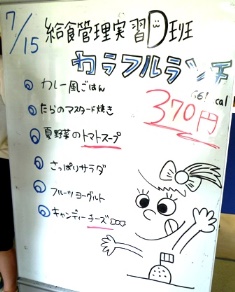 7/15 給食管理実習D班
カラフルランチ
cal
370円
カレー風ごはん
たらのマスタード焼き
夏野菜のトマトスープ
さっぱりサラダ
フルーツヨーグルト
キャンディーチーズ